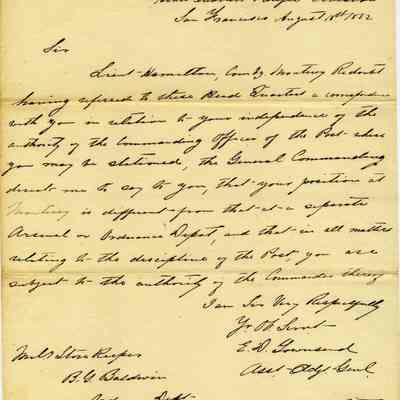 San Francisco August 18th 1852
Sir
Lieut Hamilton, Comdg Monterey Redoubt
having referred to these Head Quarters a correspondence
with you in relation to your independence of the
authority of the Commanding Officer of the Post where
you may be stationed, the General Commanding
directs me to say to you, that your position at
Monterey is different from that at a separate
Arsenal or Ordnance Depot, and that in all matters
relating to the discipline of the Post, you are
subject to the authority of the Commander thereof
I am Sir Very Respectfully
Yr Ob Servt
E. D. Townsend
Asst. Adjt. Genl.
Mily Store Keeper
B. G. Baldwin
Dept